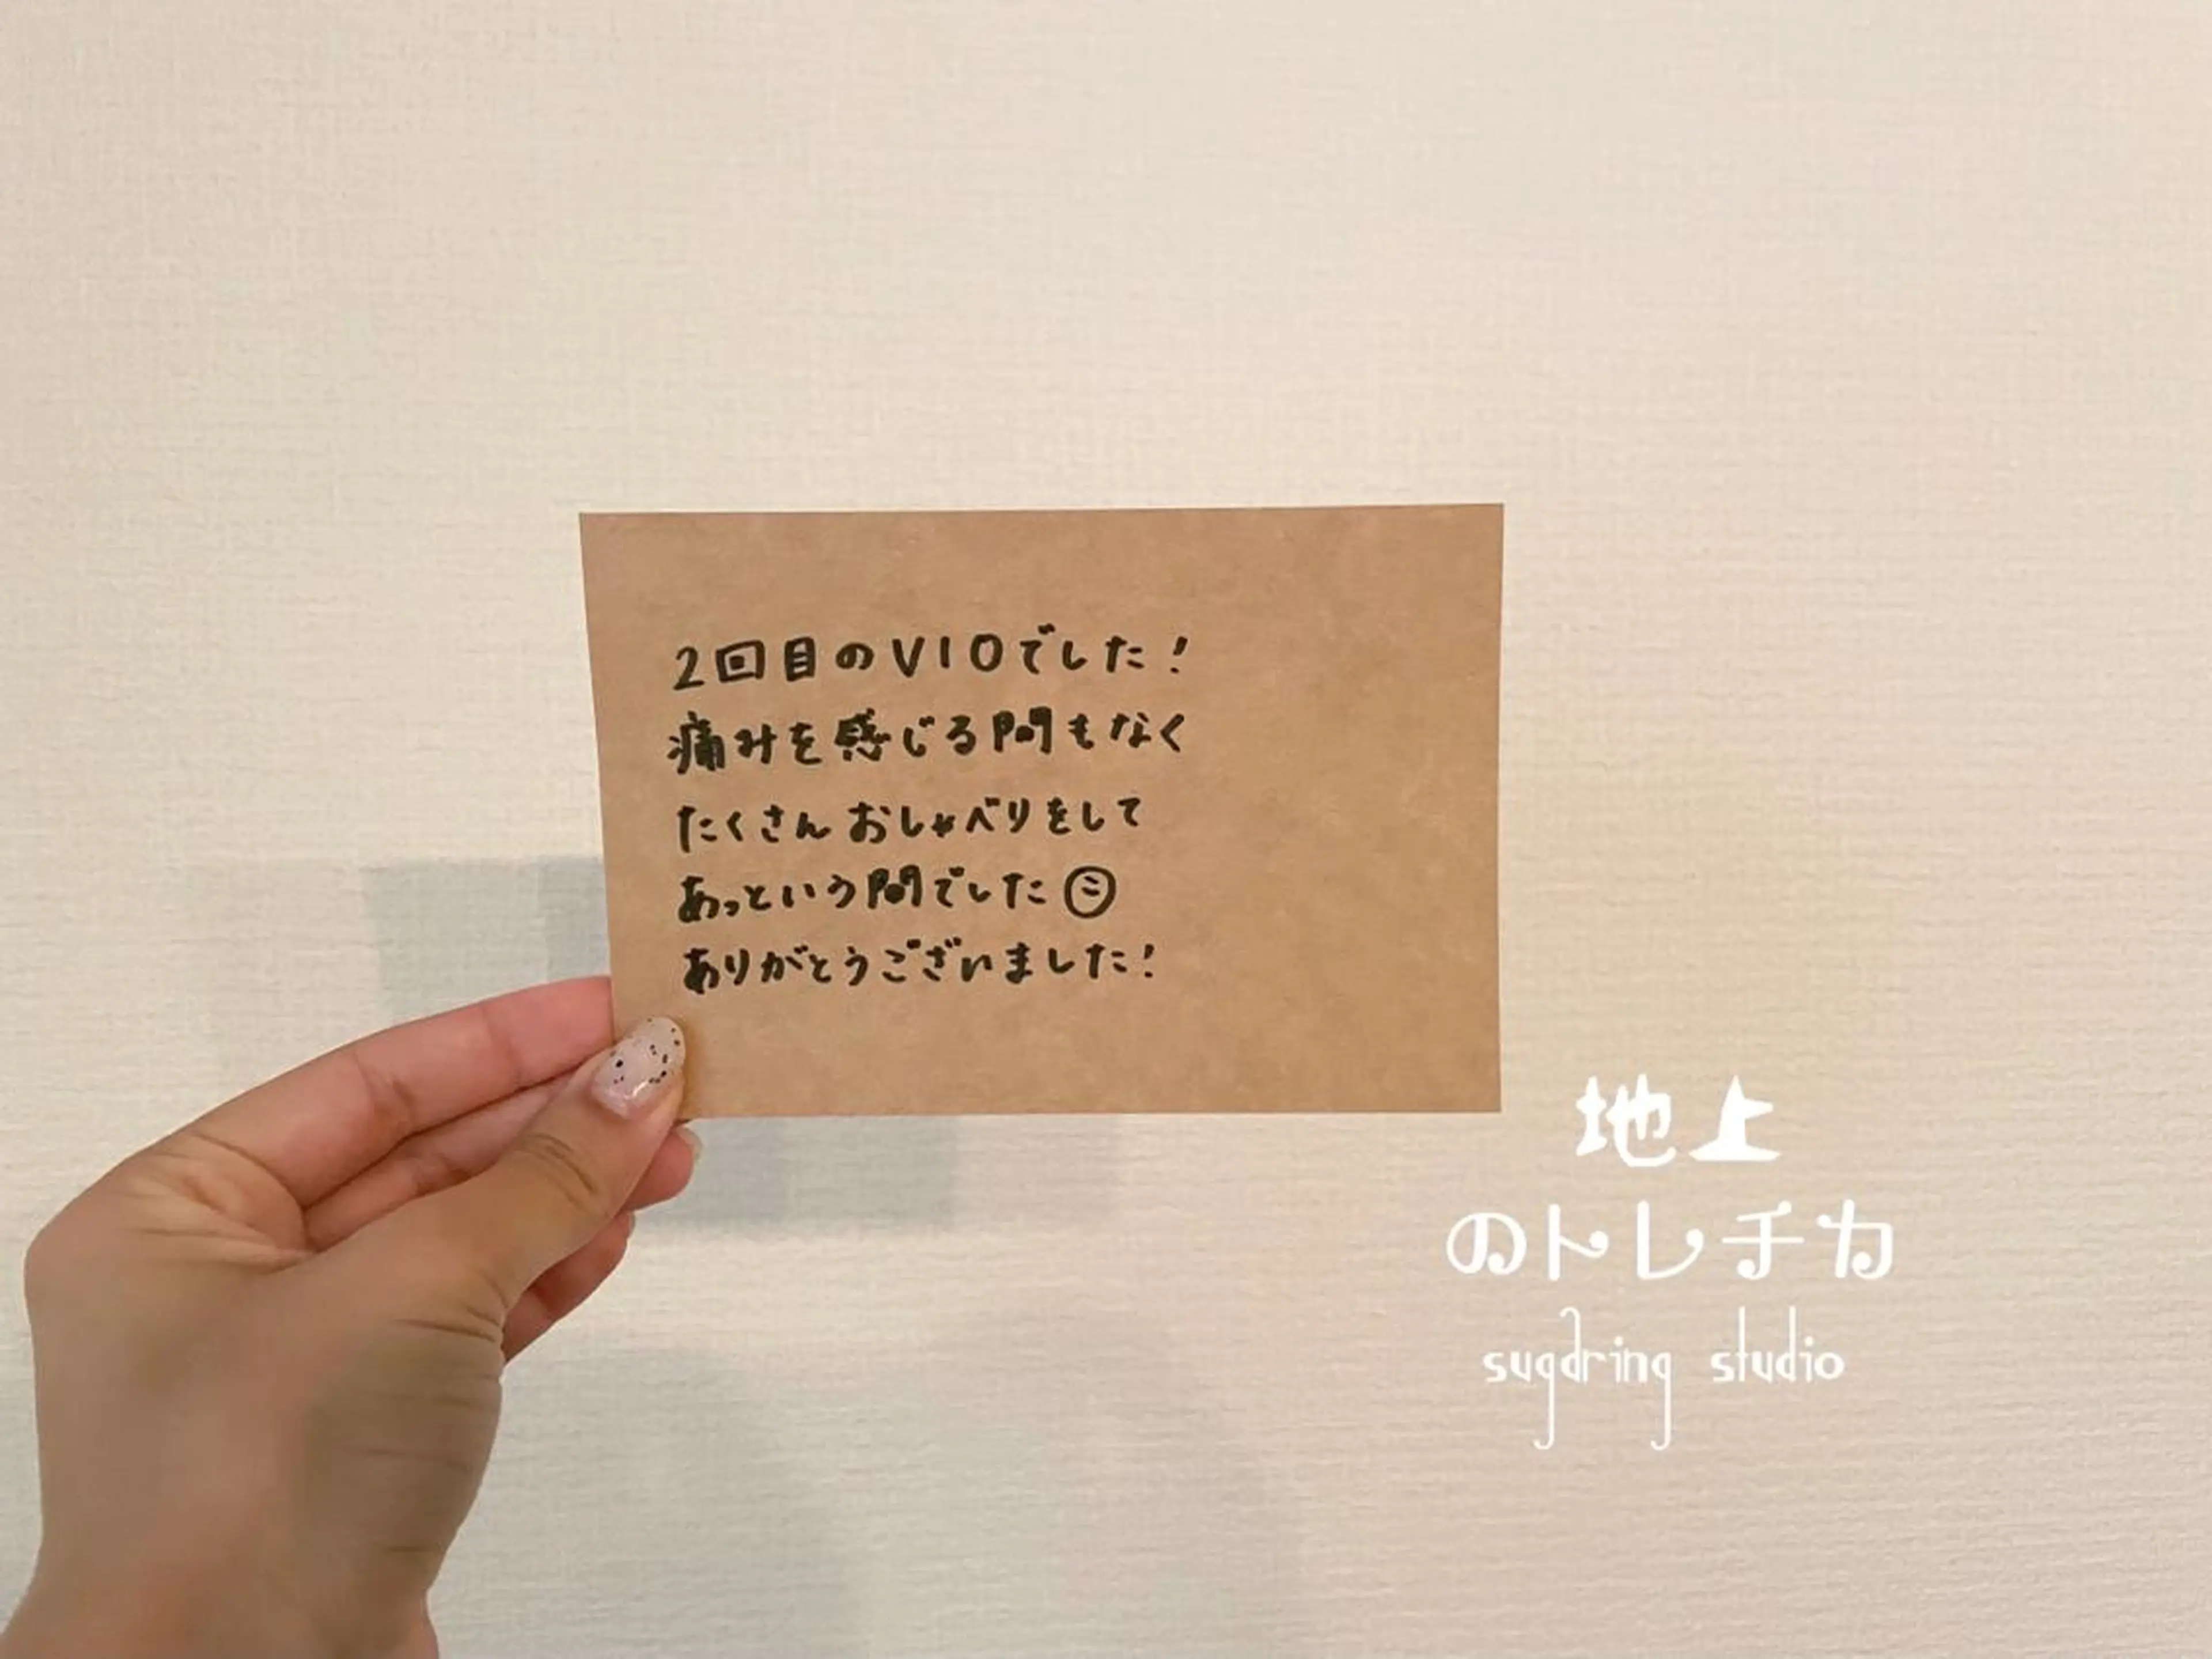 2回目のVIOでした!
痛みを感じる間もなく
たくさんおしゃべりをして
あっという間でした☺
ありがとうございました!
地上
のトレチカ
sugaring studio